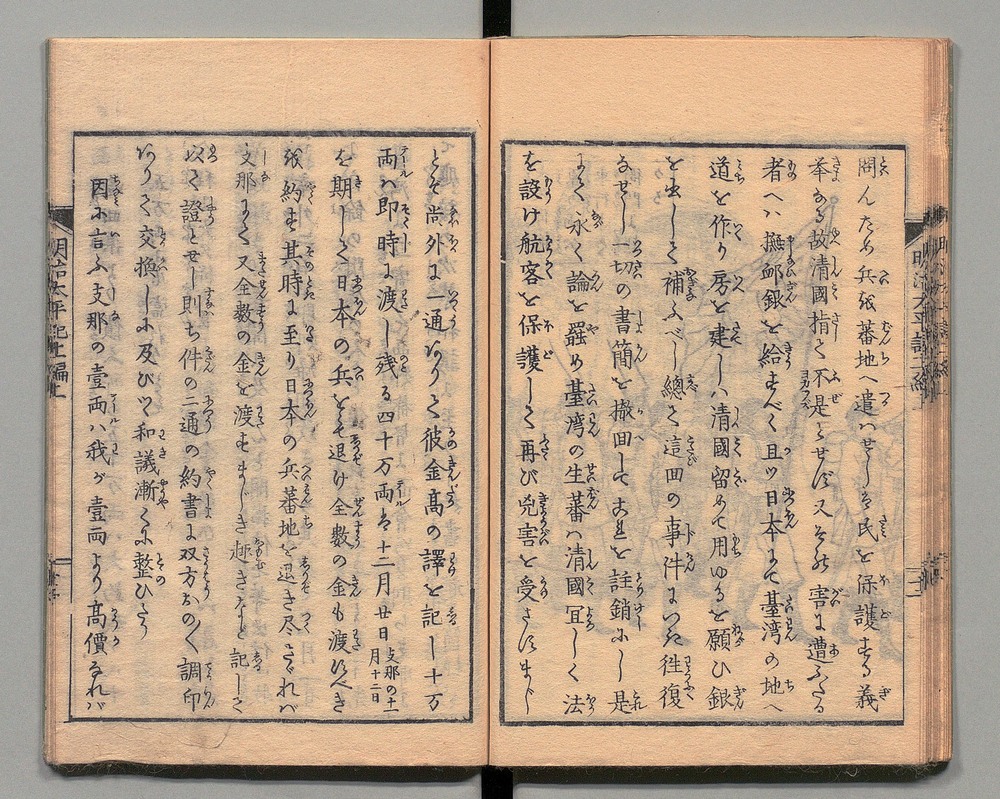 問んため兵を蕃地へ遣はせしは民を保護する義
挙なる故清國指て不是とせず又その害に遭ふたる
者へハ撫䘏銀を給すべく且ツ日本にて臺湾の地へ
道を作り房を建しハ清國留めて用ゆるを願ひ銀
を出して補ふべし總て這回の事件につき徃復
なせし一切の書簡を撤回してこれを註銷にし是
にて永く論を罷め臺湾の生蕃ハ清國冝しく法
を設け航客を保護して再び兇害を受さすまじ
とぞ尚外に一通ありて彼金髙の譯を記し十万
両ハ即時に渡し残る四十万両は十二月廿日支那の十一月十二日
を期して日本の兵をも退け全數の金も渡すべき
を約す其時に至り日本の兵蕃地を退き尽さゞれバ
支那にて又全數の金を渡すまじき趣きなど記して
以て證とせし則ち件の二通の約書に双方おのく調印
ありて交換しに及びツ和議漸くに整ひたり
因に言ふ支那の壹両ハ我が壹両より髙價なれバ
明治太平記十一編上